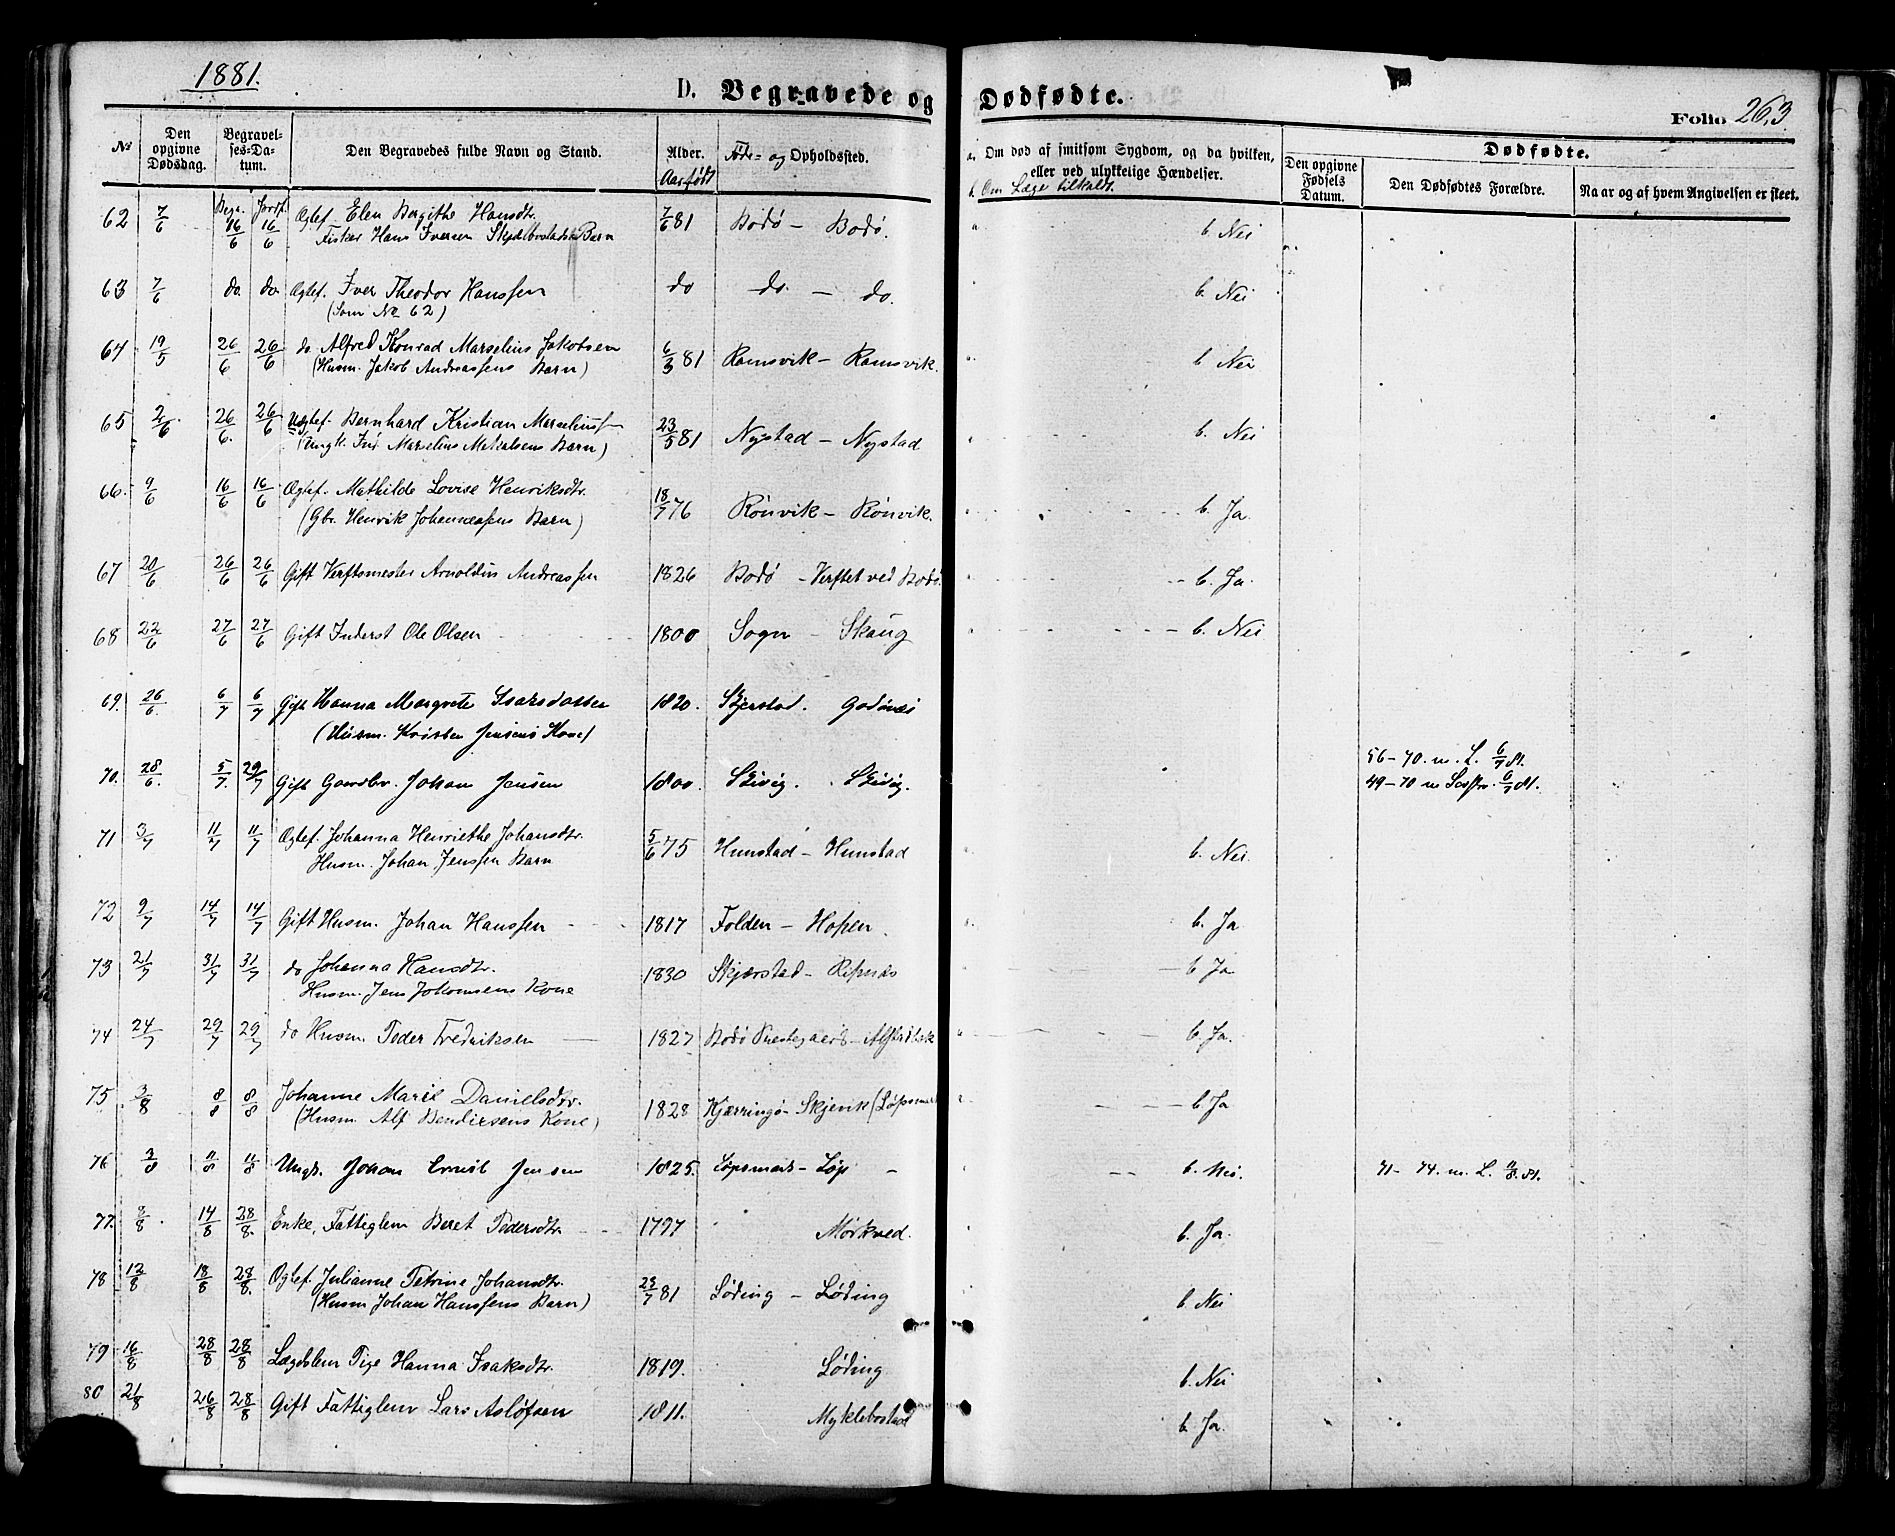 1881.
D. Begravede og Dødfødte.
Folio 263
№ Den opgivne Dødsdag. Begravelses-Datum. Den Begravedes fulde Navn og Stand. Alder. Aar født Føde- og Opholdssted. a. Om død af smitsom Sygdom, og da hvilken, eller ved ulykkelige Hændelser. b. Om Læge tilkaldt. Den opgivne Fødsels Datum. Dødfødte. Den Dødfødtes Forældre. Naar og af hvem Angivelsen er skeet.
Begr. Jordf.
62 7/6 16/6 16/6 Ægtef. Elen Bergithe Hansdtr. 7/6 81 Bodø – Bodø. b. Nei
Fisker Hans Iversen Barn
63 7/6 do. do. Ægtef. Iver Theodor Hanssen do do. – do. b. Nei
(Som No 62)
64 19/5 26/6 26/6 do Alfred Konrad Marselius Jakobsen 6/3 81 Ramsvik – Ramsvik. b. Nei
(Husm. Jakob Andreassens Barn)
65 2/6 26/6. 26/6 Uægtef. Bernhard Kristian Marselius 23/5 81 Nystad – Nystad b. Nei
(Ungk. Marselius Barn)
66. 9/6 16/6 16/6 Ægtef. Mathilde Lovise Henriksdtr. 18/7 76 Rønvik – Rønvik. b. Ja.
(Gbr. Henrik Johannessens Barn)
67 20/6 26/6 26/6 Gift Verftsmester Arnoldus Andreassen 1826 Bodø – Verftet ved Bodø. b. Ja.
68 22/6 27/6 27/6 Gift Inderst Ole Olsen 1800 Sogn – Skaug b. Nei
69. 26/6. 6/7 6/7 Gift Hanna Margrete Isaksdatter 1820. Skjerstad.
(Husm. Jensens Kone)
56–70. m. L. 6/7 81.
70. 28/6. 5/7. 29/7 Gift Gaardbr. Johan Jensen 1800. Skivig. Skivig. 49–70 m 6/7 81.
71 3/7 11/7 11/7 Ægtef. Johanna Henriethe Johansdtr. 5/6 75 Hunstad – Hunstad b. Nei.
Husm. Johan Jenssen Barn
72 9/7 14/7 14/7 Gift Husm. Johan Hanssen 1817 Folden – Hopen. b. Ja
73 21/7 31/7 31/7 do Johanna Hansdtr. 1830 Skjærstad – Ripnes b Ja
Husm. Jens Kone
74 24/7 29/7 29/7 do Husm. Peder Fredriksen 1827 Bodø Prestegaard – b Ja.
75 3/8 8/8 8/8 Johanne Marie Danielsdtr. 1828 Kjærringø – Skjevik b Ja
(Husm. Alf Kone)
76 3/8 11/8 11/8 Ungk. Johan Ernst Jensen 1825. Løpsmark – Løp – b. Nei. 71– 74. m. L. 11/8. 81.
77. 8/8. 14/8 28/8. Enke, Fattiglem Beret Pedersdtr. 1797 Mørkved. b. Ja.
78 12/8 18/8 28/8. Ægtef. Julianne Petrine Johansdtr. 23/7 81 Løding – Løding b. Nei
(Husm Johan Hanssens Barn)
79 16/8 28/8 28/8 Lægdslem Pige Hanna Isaksdtr. 1819. Løding b. Nei
80 21/8 26/8 28/8 Gift Fattiglem Lars Asløfsen 1811. Myklebostad b. Ja.